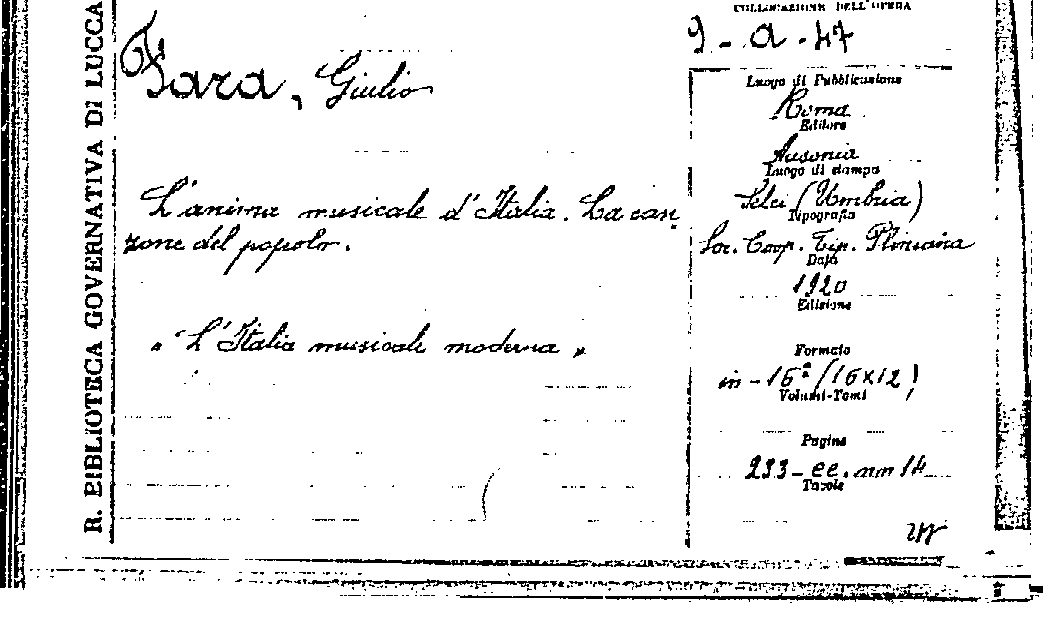 R. BIBLIOTECA GOVERNATIVA DI LUCCA
COLLOCAZIONE DELL'OPERA
9 - a - 47
Fara, Giulio
L'anima musicale d'Italia. La can
zone del popolo.
"L'Italia musicale moderna"
Luogo di Pubblicazione
Roma
Editore
Ausonia
Luogo di stampa
Selci (Umbria)
Tipografia
Soc. Coop. Tip. Pliniana
Data
1920
Edizione
Formato
in - 16° (16x12)
Volumi-Tomi
Pagine
233 - cc. nn 14
Tavole